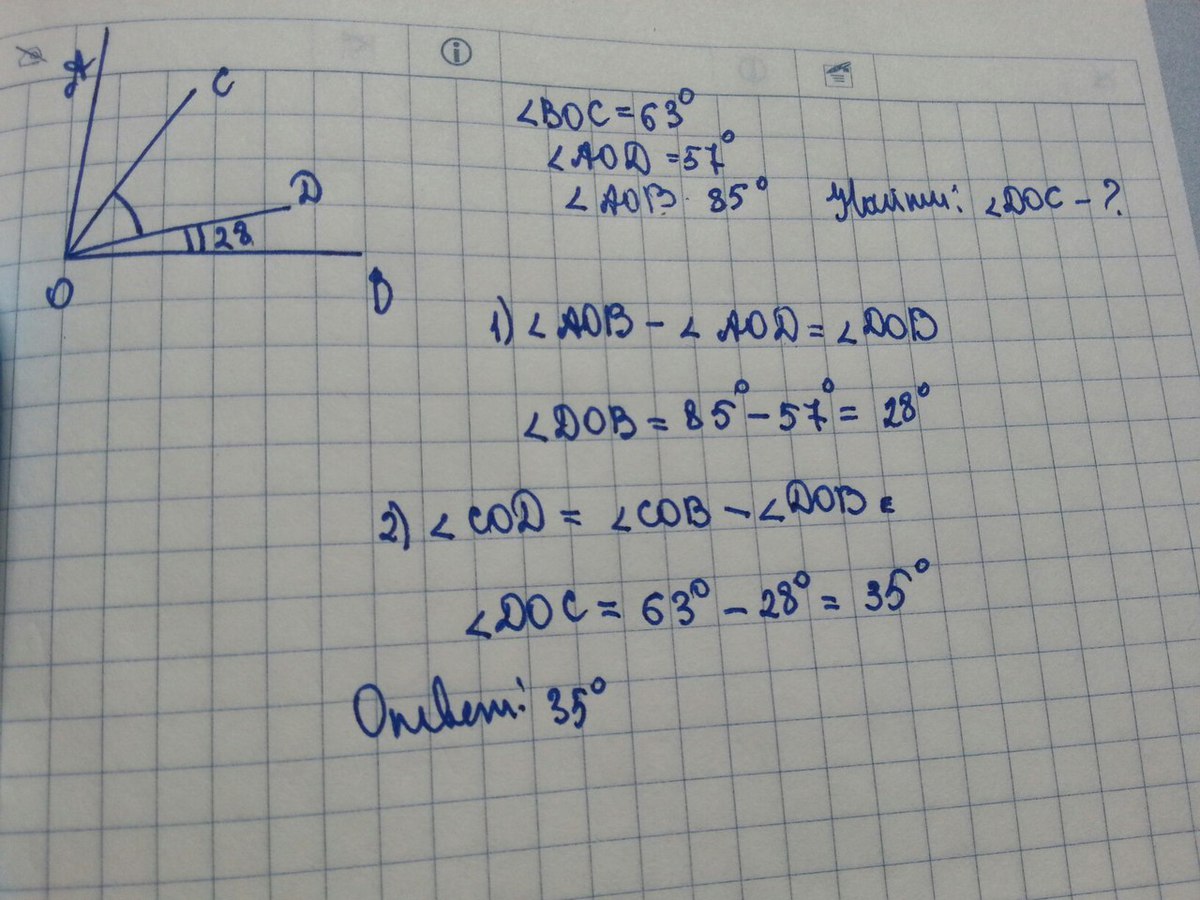 A
C
D
28
O
B
∠BOC = 63°
∠AOD = 57°
∠AOB. 85° Найти: ∠DOC - ?
1) ∠AOB - ∠AOD = ∠DOB
∠DOB = 85° - 57° = 28°
2) ∠COD = ∠COB - ∠DOB =
∠DOC = 63° - 28° = 35°
Ответ: 35°